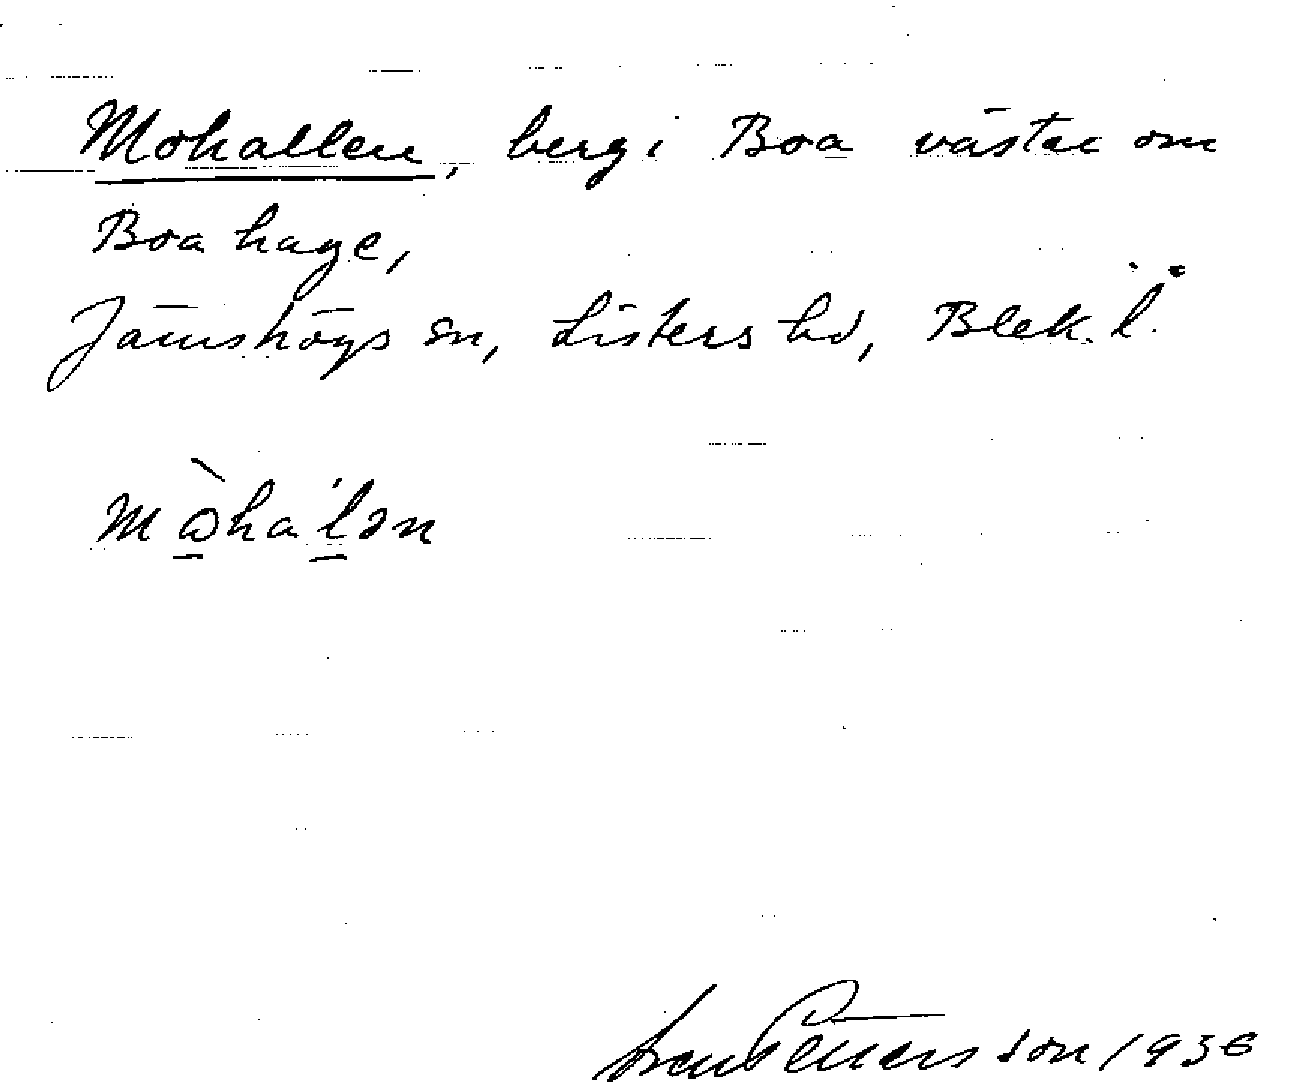 Mohallen, berg i Boa väster om
Boa hage,
Jämshögs sn, Listers hd, Blek. l.
mòhalən
Pettersson 1936